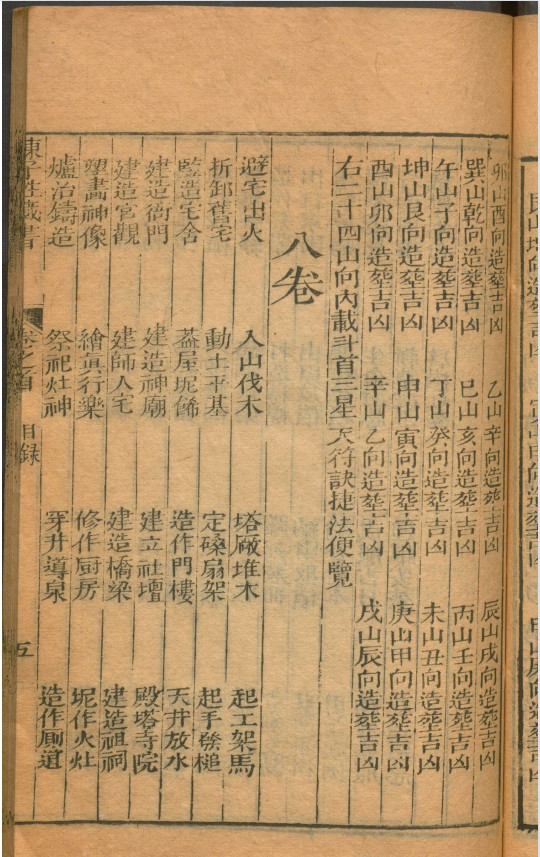 卯山酉向造塟吉凶 乙山辛向造塟吉凶 辰山戌向造塟吉凶
巽山乾向造塟吉凶 巳山亥向造塟吉凶 丙山壬向造塟吉凶
午山子向造塟吉凶 丁山癸向造塟吉凶 未山丑向造塟吉凶
坤山艮向造塟吉凶 申山寅向造塟吉凶 庚山甲向造塟吉凶
酉山卯向造塟吉凶 辛山乙向造塟吉凶 戌山辰向造塟吉凶
右二十四山向內載斗首三星天符訣捷法便覽
八卷
避宅出火 入山伐木 塔廠堆木 起工架馬
折卸舊宅 動土平基 定磉扇架 起手發槌
監造宅舍 葢屋坭餙 造作門樓 天井放水
建造衙門 建造神廟 建立社壇 殿塔寺院
建造宮觀 建師人宅 建造橋梁 建造祖祠
塑畫神像 繪眞行樂 修作厨房 坭作火灶
爐冶鑄造 祭祀灶神 穿井導泉 造作厠道
卷之首 目錄